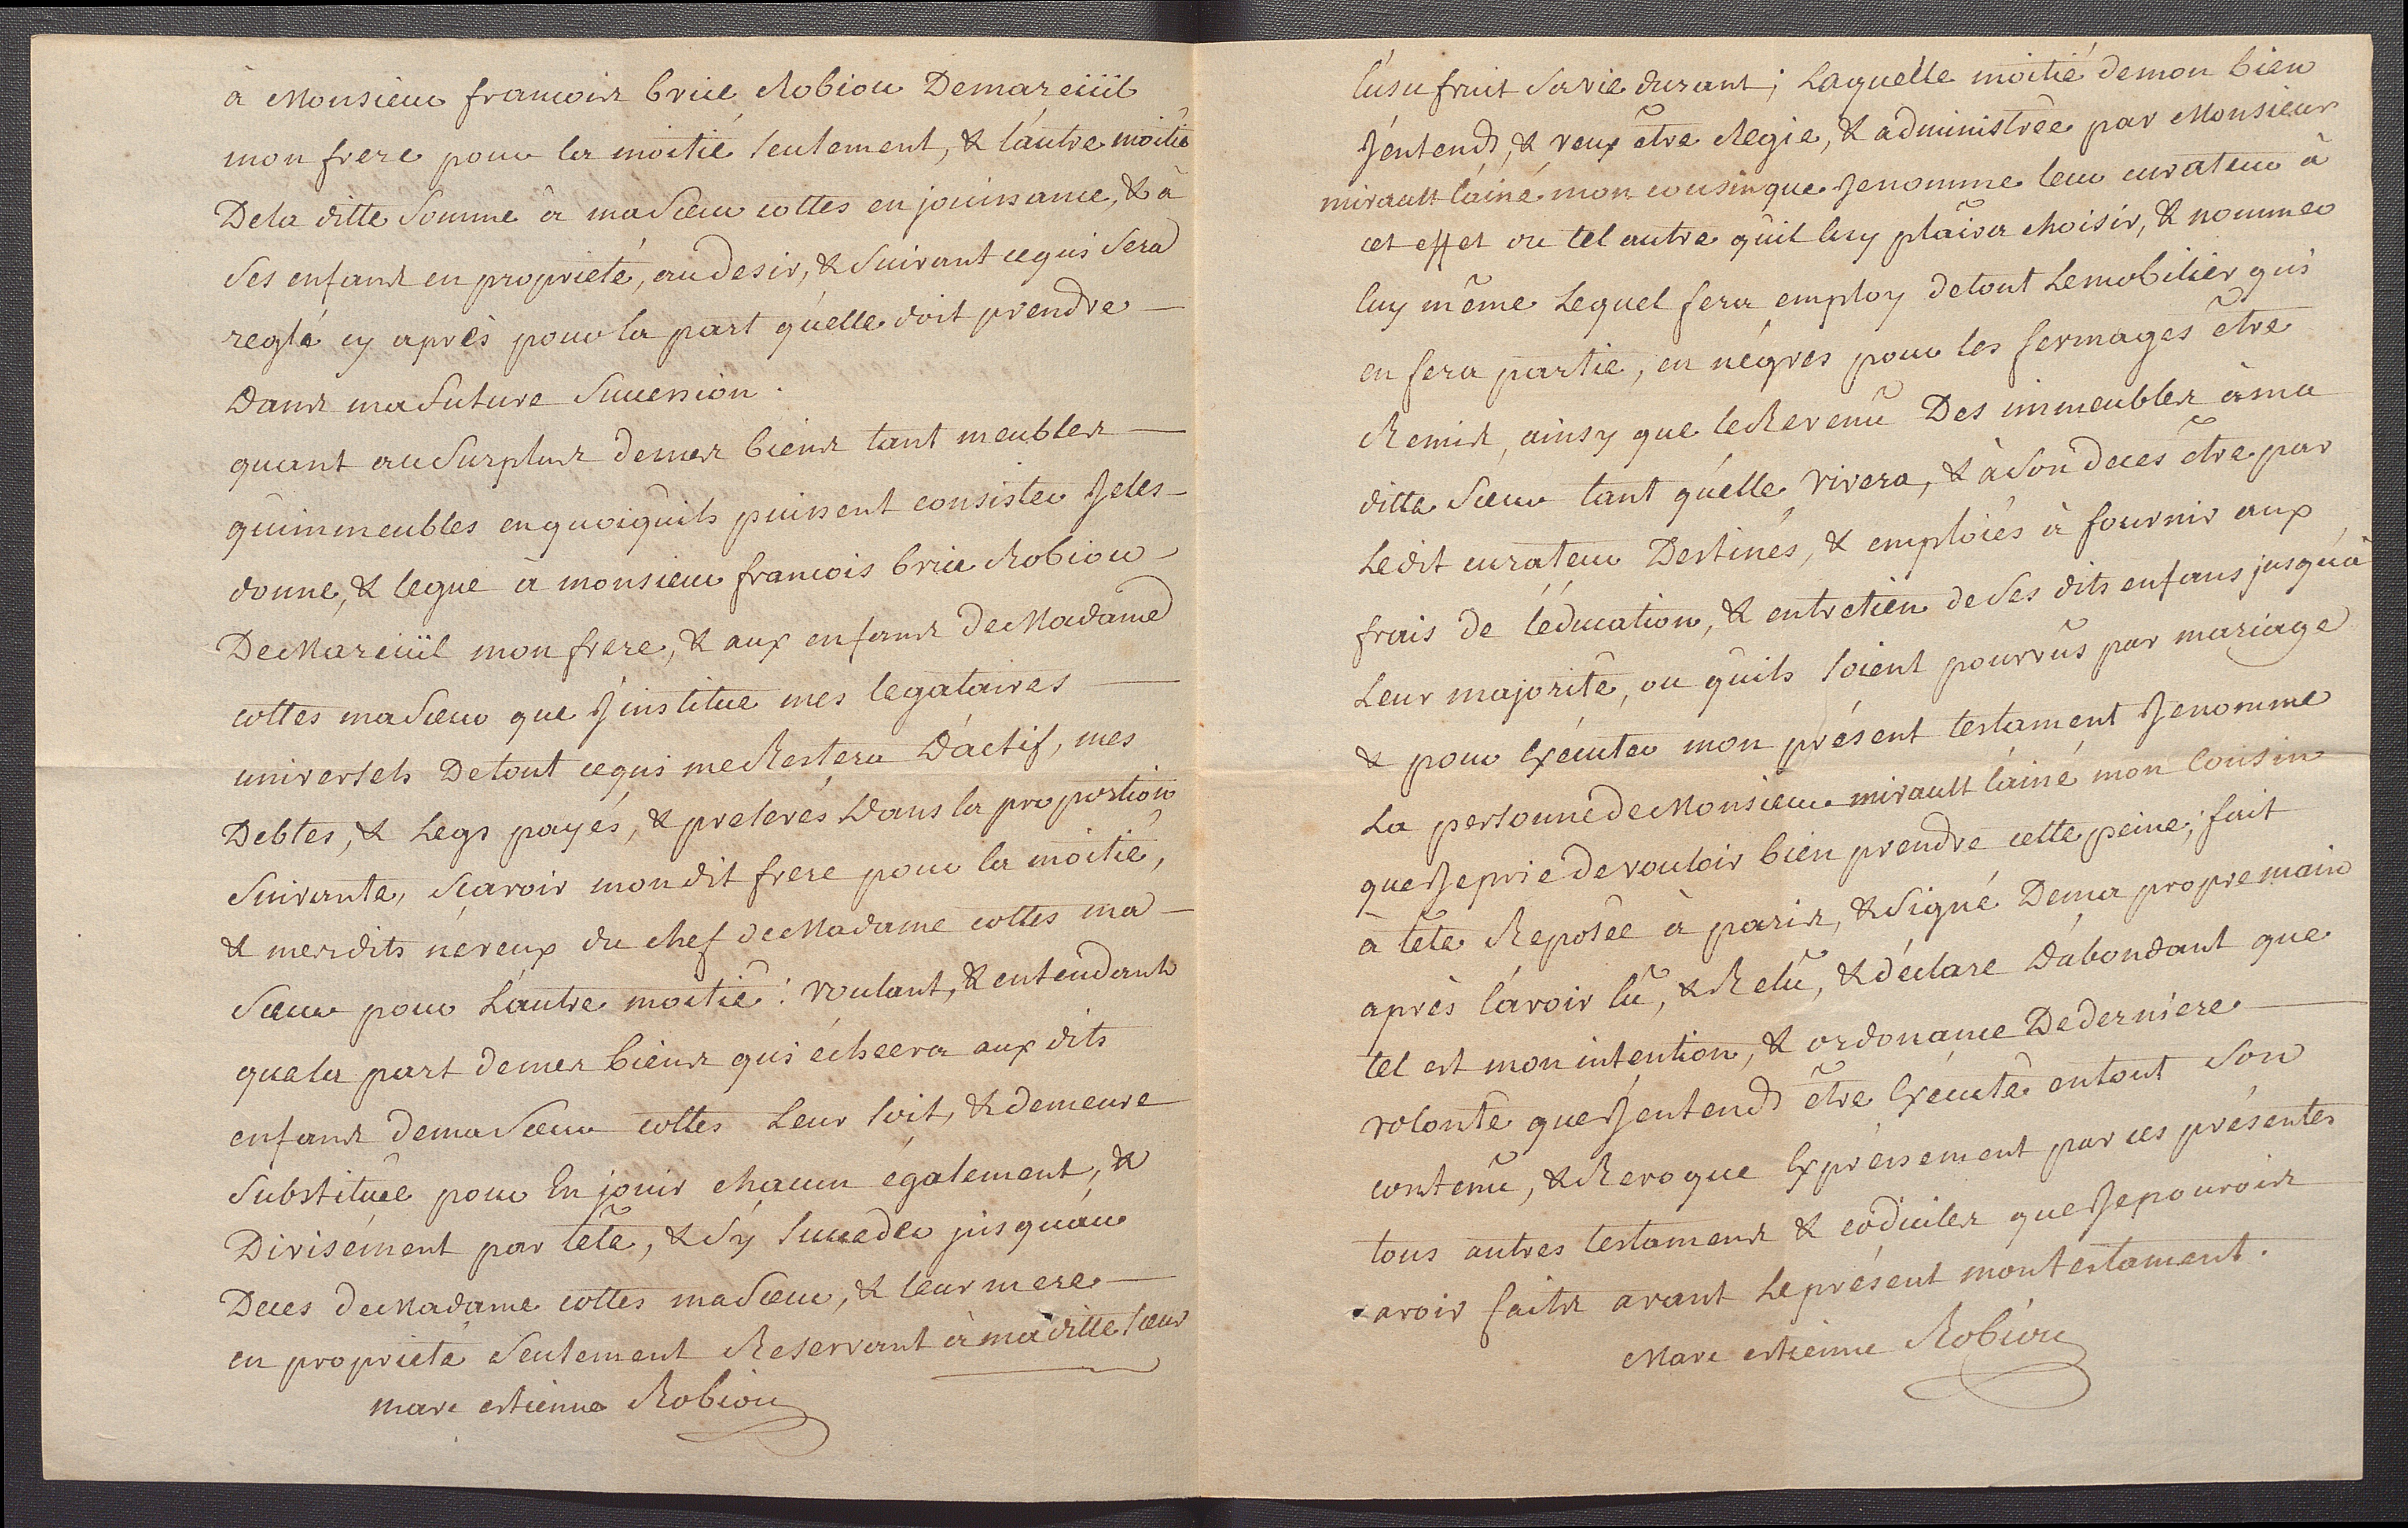 à Monsieur francois brice Robiou Demareüil
mon frere pour la moitié seulement, & l'autre moitié
De la ditte somme à ma sœur cottes en jouissance, & à
ses enfans en proprieté, au desir, & suivant ce qui sera
reglé cy après pour la part qu'elle doit prendre —
Dans ma future succession.
quant au surplus de mes biens tant meubles —
qu'immeubles en quoiqu'ils puissent consister Je les —
donne, & legue à monsieur francois brice Robiou —
De Mareüil mon frere, & aux enfans de Madame
cottes ma sœur que J'institue mes legataires —
universels De tout ce qui me Restera D'actif, mes
Debtes, & Legs payés, & prelevés Dans la proportion
suivante, scavoir mon dit frere pour la moitié,
& mes dits néveux du chef de Madame cottes ma —
sœur pour L'autre moitié : voulant, & entendant
que la part de mes biens qui écheera aux dits
enfans de ma sœur cottes Leur soit, & demeure
substituée pour En jouir chacun également, &
Divisément par tête, & s'y succeder jusqu'au
Deces de Madame cottes ma sœur, & leur mere —
en proprieté seulement Reservant à ma ditte sœur
marc estienne Robiou
l'usufruit sa vie durant ; Laquelle moitié de mon bien
J'entends, & veux être Regie, & administrée par Monsieur
mirault l'ainé mon cousin que Je nomme leur curateur à
cet effet ou tel autre qu'il luy plaira choisir, & nommer
luy même Lequel fera employ de tout Le mobilier qui
en fera partie, en négres pour les fermages être
Remis, ainsy que le Revenu Des immeubles à ma
ditte sœur tant qu'elle vivera, & à son deces être par
Ledit curateur Destinés, & emploiés à fournir aux
frais de l'éducation, & entretien de ses dits enfans jusqu'à
Leur majorité, ou qu'ils soient pourvûs par mariage
& pour Exécuter mon présent testament Je nomme
La personne de Monsieur mirault l'ainé mon Cousin
que Je prie de vouloir bien prendre cette peine ; fait
à tête Reposée à paris, & signé De ma propre main
après l'avoir lû, & Relû, & déclare D'abondant que
tel est mon intention, & ordonance De derniere —
volonté que J'entends être Exécuté en tout son
contenu, & Revoque Expréssement par ces présentes
tous autres testamens & codiciles que Je pourois
avoir faits avant Le présent mon testament.
Marc estienne Robiou